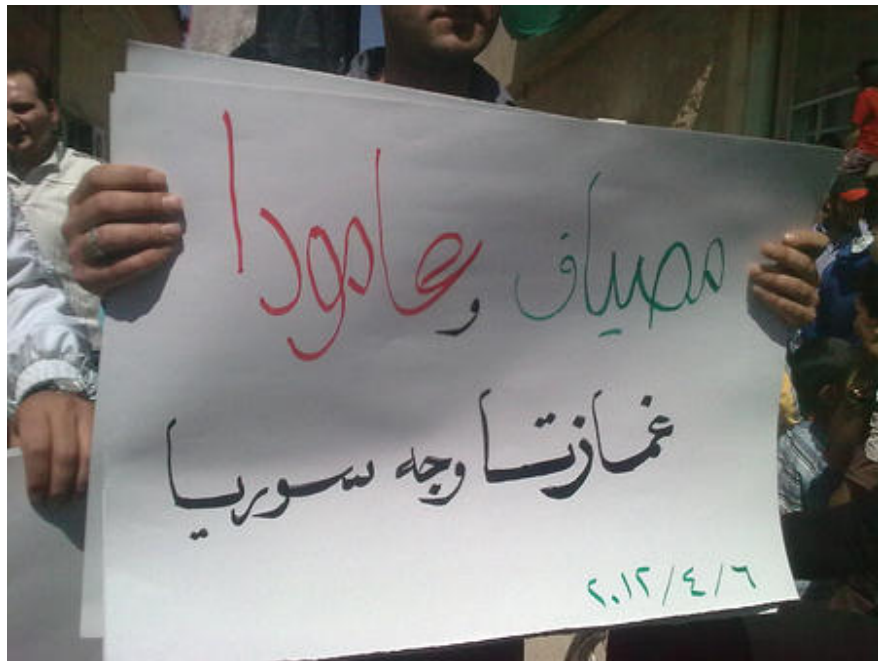 مصياف و عامودا
غمازتا وجه سوريا
٢٠١٢/٤/٦